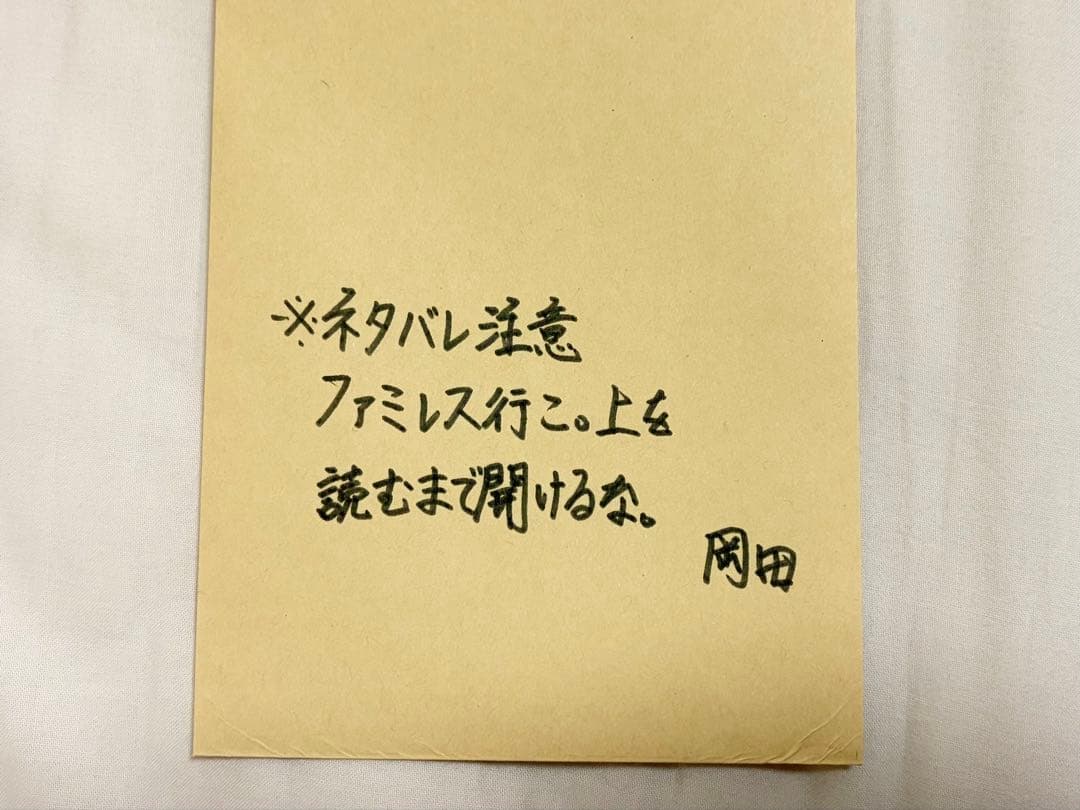 ※ネタバレ注意
ファミレス行こ。上を
読むまで開けるな。
岡田